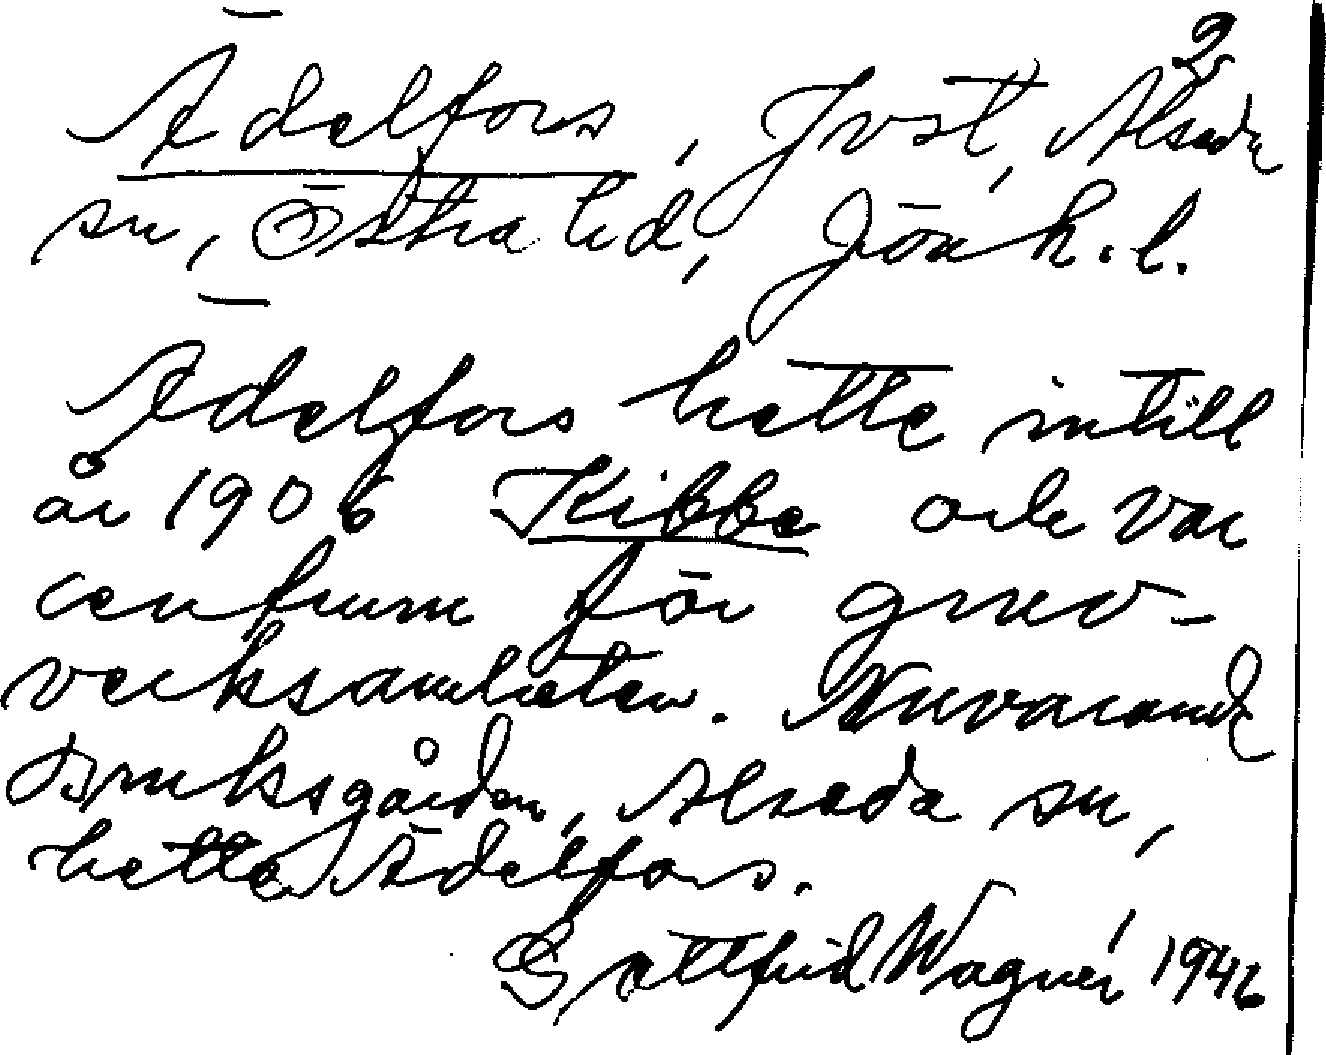 2
Ädelfors, Jvst, Alseda
sn, Östra hd, Jönk. l.
Ädelfors hette intill
år 1906 Kibbe och var
centrum för gruv-
verksamheten. Nuvarande
Bruksgården, Alseda sn,
hette Ädelfors.
Gottfrid Wagnér 1946